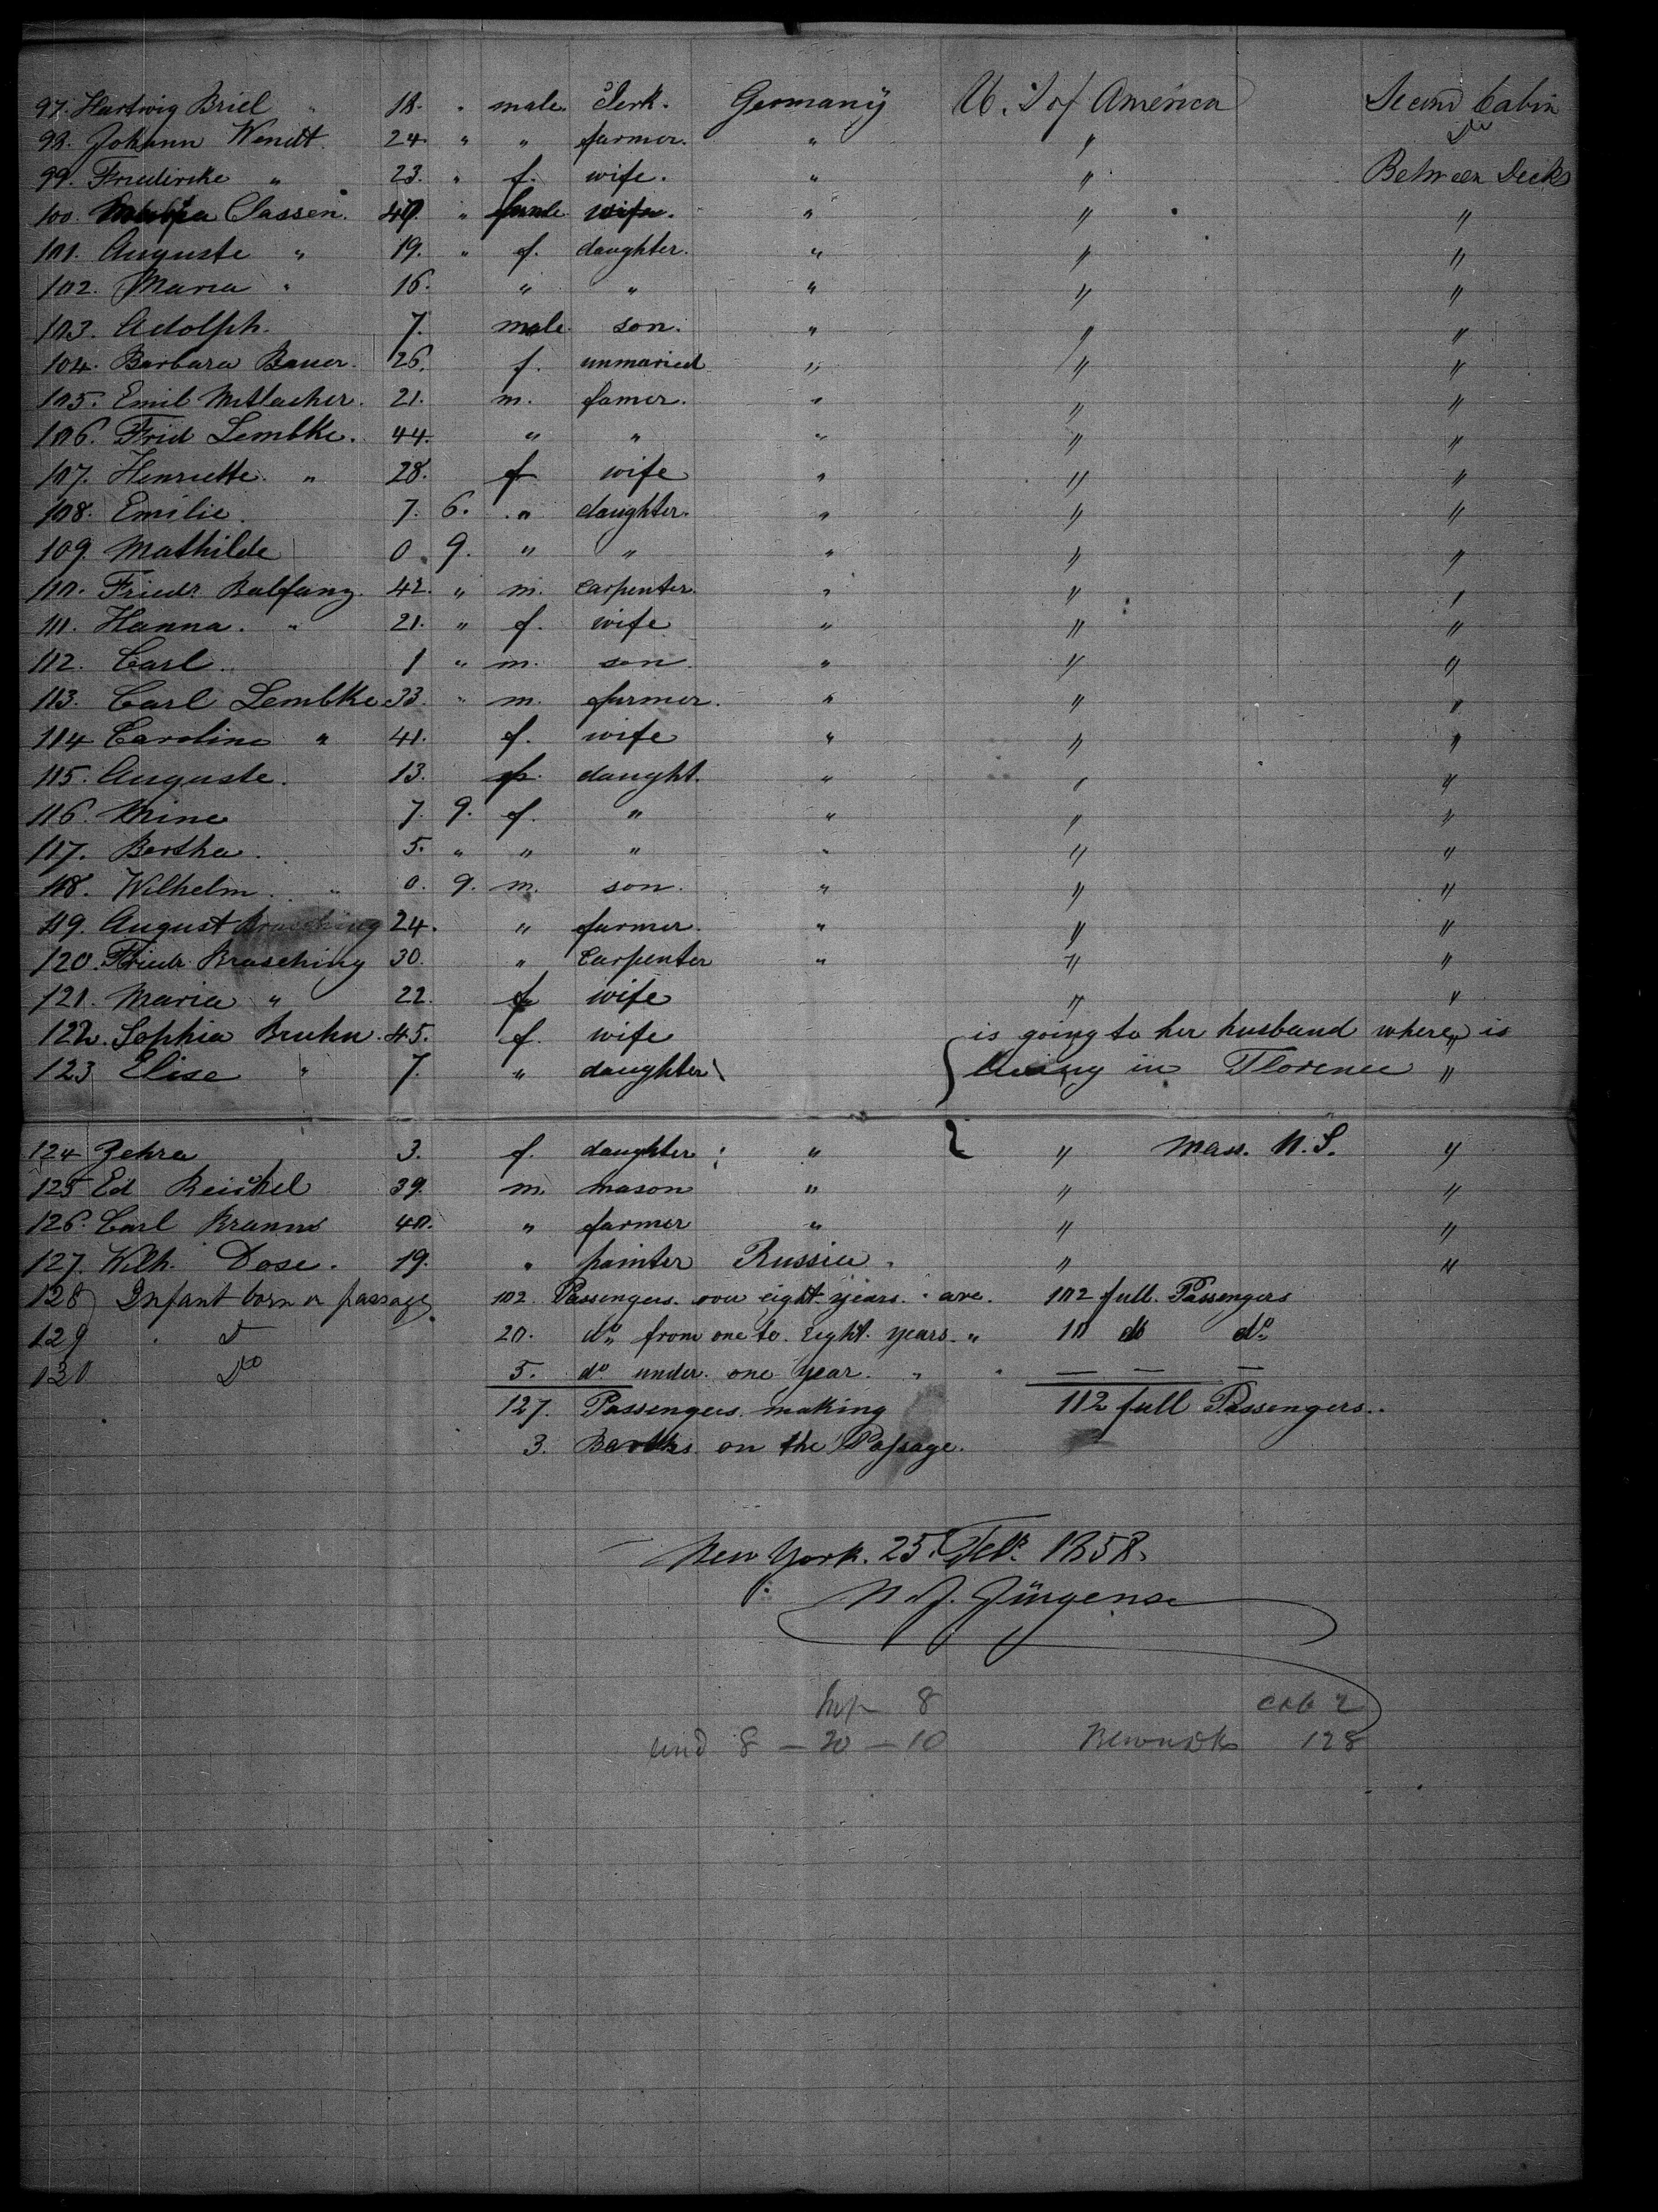 97. Hartwig Briel " 18. " male Clerk. Germany U. S of America Second Cabin
98. Johann Wendt. 24. " " farmer. " " Do
99. Friedericke " 23. " f. wife. " " Between Decks
100. Classen. " female wife. " " "
101. Auguste " 19. " f. daughter. " " "
102. Maria " 16. " " " " "
103. Adolph. 7. male son. " " "
104. Barbara Bauer. 26. f. unmaried " " "
105. Emil 21. m. famer. " " "
106. Frid Lembke. 44. " " " " "
107. Henriette " 28. f wife " " "
108. Emilie. 7. 6. " daughter. " " "
109. Mathilde 0. 9. " " " " "
110. Friedr Balfanz. 42. " m. Carpenter. " " "
111. Hanna. " 21. " f. wife " " "
112. Carl. 1 " m. son. " " "
113. Carl Lembke 33. " m. farmer. " " "
114 Caroline " 41. f. wife " " "
115. Auguste. 13. f. daught. " " "
116. Mine 7. 9. f. " " " "
117. Bertha. 5. " " " " " "
118. Wilhelm. " 0. 9. m. son. " " "
119. August Brasching 24. " farmer. " " "
120. Friedr. Brasching 30. " Carpenter " " "
121. Maria " 22. f wife " "
122. Sophia Bruhn. 45. f. wife is going to her husband where is "
123 Elise " 7. " daughter living in Florence "
124 Zehra 3. f. daughter " " Mass. N. S. "
125 Ed Reichel 39. m. mason " " "
126. Carl Brunns 40. " farmer " " "
127. Wilh. Dose. 19. " painter Russia. " "
128 Infant born on passage. 102. Passengers. over eight years. " are. 102 full. Passengers
129 " Do 20. do from one to Eight. years. " 10 do do
130 Do 5. do under. one Year. " " — — —
127. Passengers making 112 full Passengers..
3. Births on the Passage.
New York. 25. Febr. 1858.
N. J. Jürgensen
8 cab 2
und 8 — 20 — 10 128